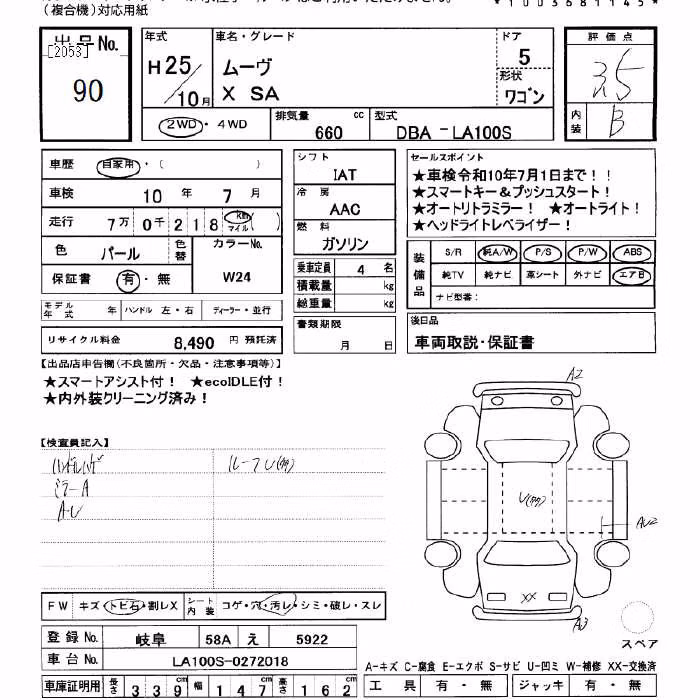 (複合機)対応用紙
*1003681145*
出品No.
[2053]
90
年式
H25/10月
車名・グレード
ムーヴ
X SA
ドア
5
形状
ワゴン
評価点
3.5
内装
B
2WD・4WD
排気量
660 cc
型式
DBA-LA100S
車歴 自家用・( )
車検 10年 7月
走行 7万 0千 218 km マイル ( )
色 パール
色替
カラーNo.
W24
保証書 有・無
モデル年式 年
ハンドル 左・右
ディーラー・並行
リサイクル料金 8,490 円 預託済
シフト
IAT
冷房
AAC
燃料
ガソリン
乗車定員 4 名
積載量 kg
総重量 kg
書類期限
月 日
セールスポイント
★車検令和10年7月1日まで!!
★スマートキー&プッシュスタート!
★オートリトラミラー! ★オートライト!
★ヘッドライトレベライザー!
装備品
S/R 純A/W P/S P/W ABS
純TV 純ナビ 革シート 外ナビ エアB
ナビ型番:
後日品
車両取説・保証書
【出品店申告欄(不良箇所・欠品・注意事項等)】
★スマートアシスト付! ★ecoIDLE付!
★内外装クリーニング済み!
【検査員記入】
ミラーA
A・U
ルーフU(多)
A2
U(多)
AU2
XX
A3
スペア
FW キズ・トビ石・割レX
シート内装 コゲ・穴・汚レ・シミ・破レ・スレ
登録No. 岐阜 58A え 5922
車台No. LA100S-0272018
車庫証明用 長さ 339 幅 147 高さ 162
A-キズ C-腐食 E-エクボ S-サビ U-凹ミ W-補修 XX-交換済
工具 有・無 ジャッキ 有・無